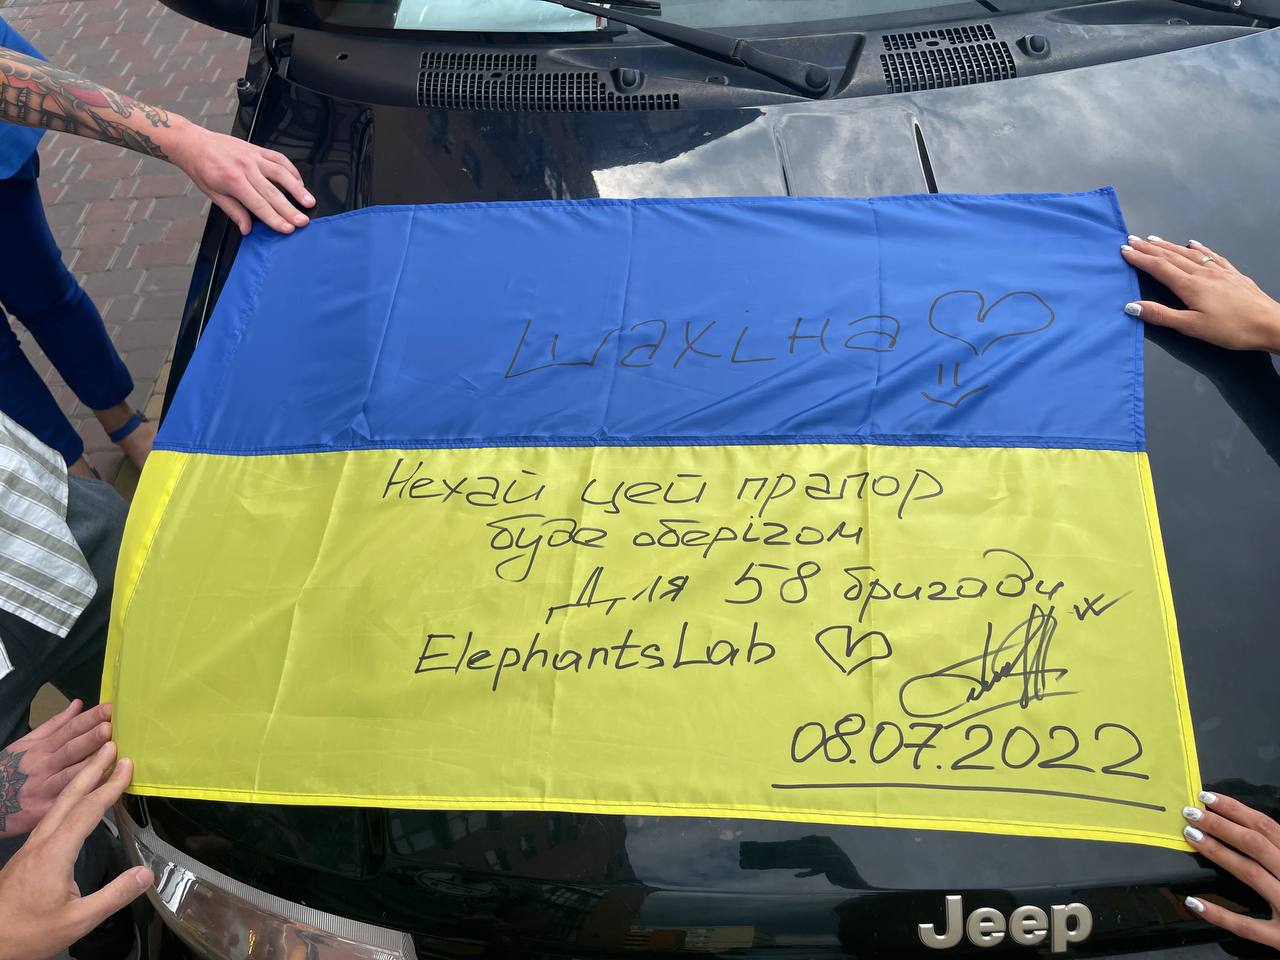 Шахіна
Нехай цей прапор
буде оберігом
Для 58 бригади
ElephantsLab
08.07.2022
Jeep